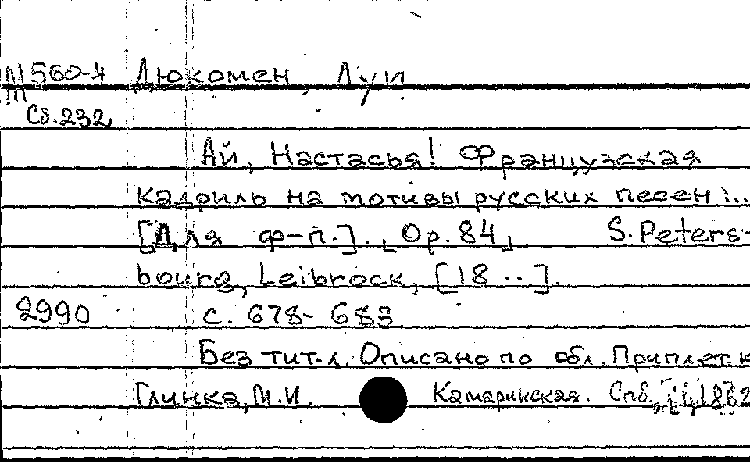 М560-4 Дюкомен, Луи
Сб.232
Ай, Настасья! Французская
кадриль на мотивы русских песен:..
[Для ф-п.]. Op. 84, S.Peters-
bourg, Leibrock, [18 ..].
2990 с. 678-683
Без тит.л. Описано по обл. Приплет к
Глинка, М.И. Камаринская. Спб, 1862